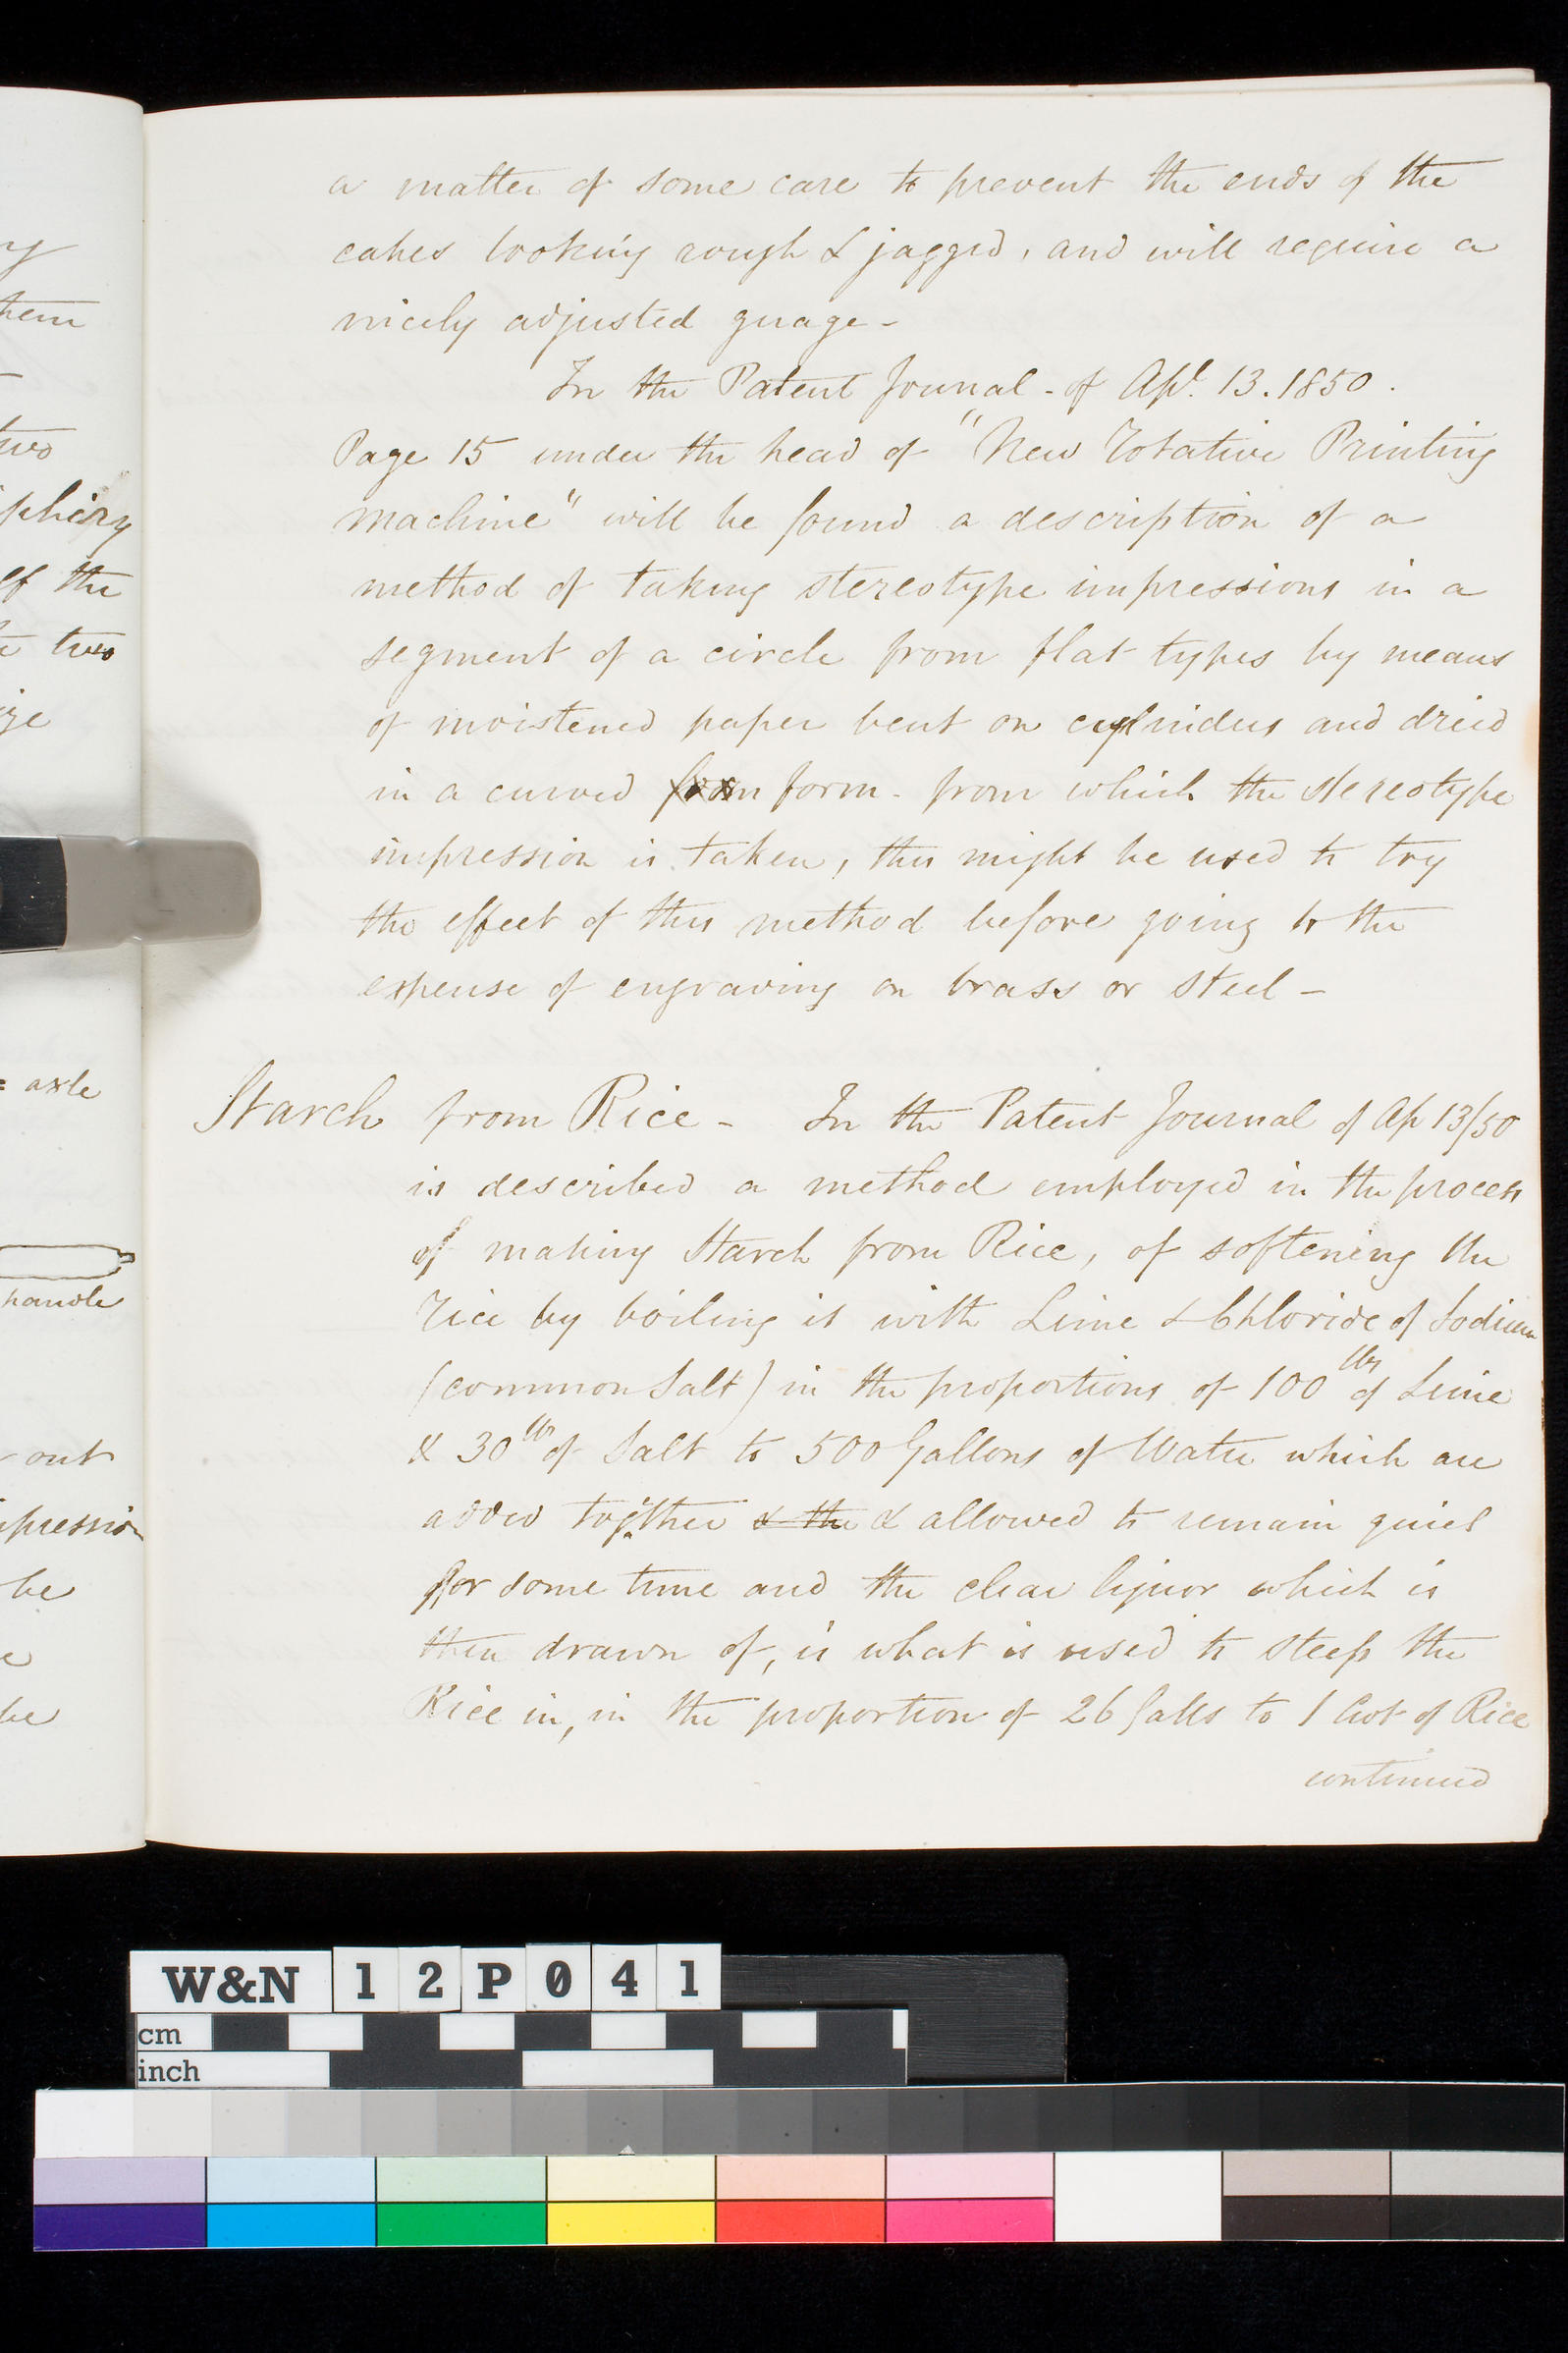 a matter of some care to prevent the ends of the
cakes looking rough & jagged, and will require a
nicely adjusted guage -
In the Patent Journal - of Apl. 13. 1850.
Page 15 under the head of "New Rotative Printing
machine" will be found a description of a
method of taking stereotype impressions in a
segment of a circle from flat types by means
of moistened paper bent on cylinders and dried
in a curved from form - from which the stereotype
impression is taken, this might be used to try
the effect of this method before going to the
expense of engraving on brass or steel -
Starch from Rice - In the Patent Journal of Ap 13/50
is described a method employed in the process
of making Starch from Rice, of softening the
rice by boiling it with Lime & Chloride of Sodium
(common Salt) in the proportions of 100 lbs of Lime
& 30 lbs of Salt to 500 Gallons of Water which are
added together & the & allowed to remain quiet
for some time and the clear liquor which is
then drawn of, is what is used to steep the
Rice in, in the proportion of 26 Galls to 1 Cwt of Rice
continued
hem
two
of the
two
axle
handle
out
be
be
W&N 12P041
cm
inch